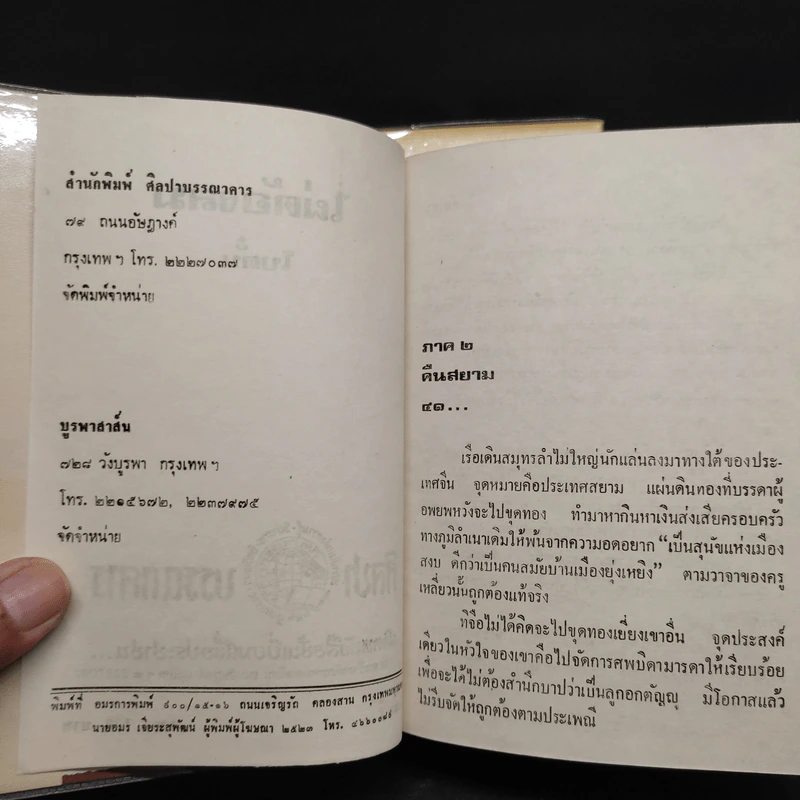 สำนักพิมพ์ ศิลปาบรรณาคาร
๗๙ ถนนอัษฎางค์
กรุงเทพฯ โทร. ๒๒๒๗๐๓๗
จัดพิมพ์จำหน่าย
บูรพาสาส์น
๗๒๘ วังบูรพา กรุงเทพฯ
โทร. ๒๒๑๕๖๗๒, ๒๒๓๗๙๗๕
จัดจำหน่าย
พิมพ์ที่ อมรการพิมพ์ ๘๐๐/๑๕-๑๖ ถนนเจริญรัถ คลองสาน
นายอมร เจียระสุพัฒน์ ผู้พิมพ์ผู้โฆษณา ๒๕๒๓ โทร.
ภาค ๒
คืนสยาม
๔๑...
เรือเดินสมุทรลำไม่ใหญ่นักแล่นลงมาทางใต้ของประ-
เทศจีน จุดหมายคือประเทศสยาม แผ่นดินทองที่บรรดาผู้
อพยพหวังจะไปขุดทอง ทำมาหากินหาเงินส่งเสียครอบครัว
ทางภูมิลำเนาเดิมให้พ้นจากความอดอยาก “เป็นสุนัขแห่งเมือง
สงบ ดีกว่าเป็นคนสมัยบ้านเมืองยุ่งเหยิง” ตามวาจาของครู
เหลี่ยวนั้นถูกต้องแท้จริง
ทีจือไม่ได้คิดจะไปขุดทองเยี่ยงเขาอื่น จุดประสงค์
เดียวในหัวใจของเขาคือไปจัดการศพบิดามารดาให้เรียบร้อย
เพื่อจะได้ไม่ต้องสำนึกบาปว่าเป็นลูกอกตัญญู มีโอกาสแล้ว
ไม่รีบจัดให้ถูกต้องตามประเพณี